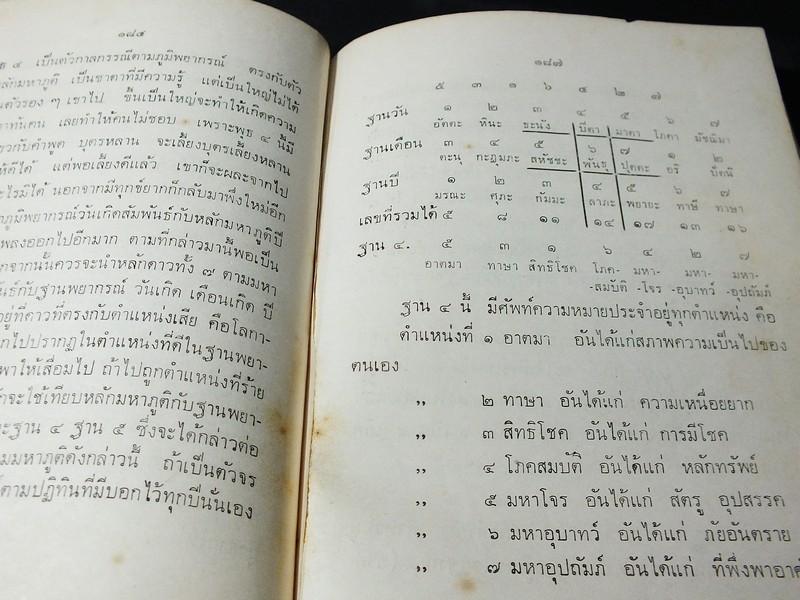 ๑๘๕
๔ เป็นตัวกาลกรรณีตามภูมิพยากรณ์ ตรงกับตัว
หลักมหาภูติ เป็นชาตาที่มีความรู้ แต่เป็นใหญ่ไม่ได้
ตัวรอง ๆ เขาไป ขืนเป็นใหญ่จะทำให้เกิดความ
ทันคน เลยทำให้คนไม่ชอบ เพราะพุธ ๔ นี้มี
กับคำพูด บุตรหลาน จะเลี้ยงบุตรเลี้ยงหลาน
ให้ดีได้ แต่พอเลี้ยงดีแล้ว เขาก็จะผละจากไป
อะไรมิได้ นอกจากมีทุกข์ยากก็กลับมาพึ่งใหม่อีก
ภูมิพยากรณ์วันเกิดสัมพันธ์กับหลักมหาภูติปี
เพลงออกไปอีกมาก ตามที่กล่าวมานี้พอเป็น
กจากนั้นควรจะนำหลักดาวทั้ง ๗ ตามมหา
พันธ์กับฐานพยากรณ์ วันเกิด เดือนเกิด ปี
อยู่ที่ดาวที่ตรงกับตำแหน่งเสีย คือโลกา-
กไปปรากฏในตำแหน่งที่ดีในฐานพยา-
พาให้เสื่อมไป ถ้าไปถูกตำแหน่งที่ร้าย
จะใช้เทียบหลักมหาภูติกับฐานพยา-
ะฐาน ๔ ฐาน ๕ ซึ่งจะได้กล่าวต่อ
มมหาภูติดังกล่าวนี้ ถ้าเป็นตัวจร
ตามปฏิทินที่มีบอกไว้ทุกปีนั่นเอง
๑๘๗
๕ ๓ ๑ ๖ ๔ ๒ ๗
ฐานวัน ๑ ๒ ๓ ๔ ๕ ๖ ๗
อัตตะ หินะ ธะนัง บิดา มาดา โภคา มัชฌิมา
ฐานเดือน ๓ ๔ ๕ ๖ ๗ ๑ ๒
ตะนุ กะฎุมภะ สหัชชะ พันธุ ปุตตะ อริ ปัตนิ
ฐานปี ๑ ๒ ๓ ๔ ๕ ๖ ๗
มรณะ ศุภะ กัมมะ ลาภะ พยายะ ทาษี ทาษา
เลขที่รวมได้ ๕ ๘ ๑๑ ๑๔ ๑๗ ๑๓ ๑๖
ฐาน ๔. ๕ ๓ ๑ ๖ ๔ ๒ ๗
อาตมา ทาษา สิทธิโชค โภค- มหา- มหา- มหา-
-สมบัติ -โจร -อุบาทว์ -อุปถัมภ์
ฐาน ๔ นี้ มีศัพท์ความหมายประจำอยู่ทุกตำแหน่ง คือ
ตำแหน่งที่ ๑ อาตมา อันได้แก่สภาพความเป็นไปของ
ตนเอง
,, ๒ ทาษา อันได้แก่ ความเหนื่อยยาก
,, ๓ สิทธิโชค อันได้แก่ การมีโชค
,, ๔ โภคสมบัติ อันได้แก่ หลักทรัพย์
,, ๕ มหาโจร อันได้แก่ สัตรู อุปสรรค
,, ๖ มหาอุบาทว์ อันได้แก่ ภัยอันตราย
,, ๗ มหาอุปถัมภ์ อันได้แก่ ที่พึ่งพาอาศั